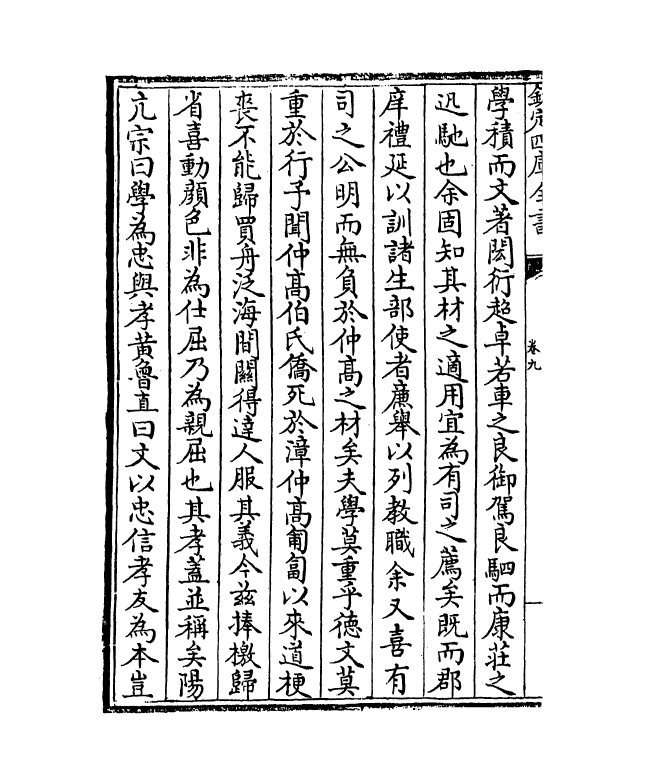 欽定四庫全書
卷九
學積而文著閎衍超卓若車之良御駕良駟而康莊之
迅馳也余固知其材之適用宜為有司之薦矣既而郡
庠禮延以訓諸生部使者亷舉以列教職余又喜有
司之公明而無負於仲髙之材矣夫學莫重乎徳文莫
重於行予聞仲髙伯氏僑死於漳仲髙匍匐以來道梗
喪不能歸買舟泛海間關得達人服其義今兹捧檄歸
省喜動顔色非為仕屈乃為親屈也其孝蓋並稱矣陽
亢宗曰學為忠與孝黄魯直曰文以忠信孝友為本豈